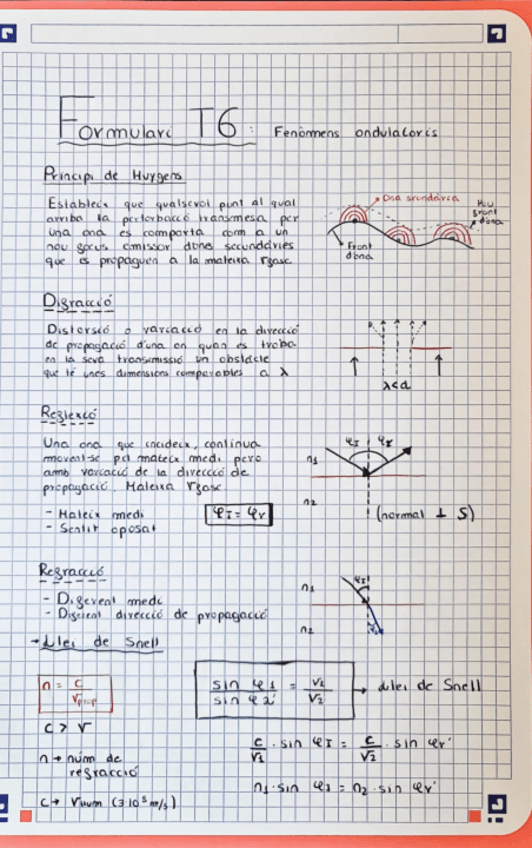 Formulari T6: Fenòmens ondulatoris
Principi de Huygens
Estableix que qualsevol punt al qual
arriba la pertorbació transmesa per
una ona es comporta com a un
nou focus emissor d'ones secundàries
que es propaguen a la mateixa vfase.
Ona secundària
Nou
front
d'ona
Front
d'ona
Difracció
Distorsió o variació en la direcció
de propagació d'una on quan es troba
en la seva transmissió un obstacle
que té unes dimensions comparables a λ
λ<d
Reflexió
Una ona que incideix, continua
movent-se pel mateix medi però
amb variació de la direcció de
propagació. Mateixa vfase
- Mateix medi
- Sentit oposat
φI = φr
n1
φI
φr
n2
(normal ⊥ S)
Refracció
- Diferent medi
- Diferent direcció de propagació
n1
φI
n2
→ Llei de Snell
n = c / vprop
sin φ1 / sin φ2' = v1 / v2 → Llei de Snell
c > v
c/v1 · sin φI = c/v2 · sin φr'
n → núm de
refracció
n1 · sin φI = n2 · sin φr'